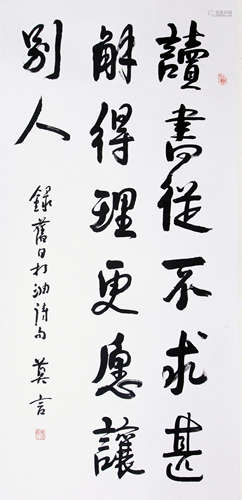 讀書從不求甚
解得理更應讓
別人
錄舊日打油詩句 莫言